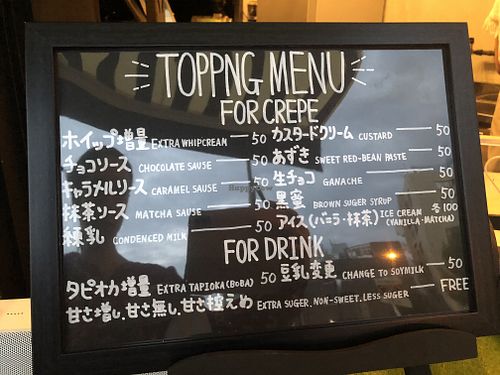 TOPPNG MENU
FOR CREPE
ホイップ増量 EXTRA WHIPCREAM 50
チョコソース CHOCOLATE SAUSE 50
キャラメルソース CARAMEL SAUSE 50
抹茶ソース MATCHA SAUSE 50
練乳 CONDENCED MILK 50
カスタードクリーム CUSTARD 50
あずき SWEET RED-BEAN PASTE 50
生チョコ GANACHE 50
黒蜜 BROWN SUGER SYRUP 50
アイス(バニラ・抹茶) ICE CREAM (VANILLA・MATCHA) 各100
FOR DRINK
タピオカ増量 EXTRA TAPIOKA (BOBA) 50
豆乳変更 CHANGE TO SOYMILK 50
甘さ増し、甘さ無し、甘さ控えめ EXTRA SUGER, NON-SWEET, LESS SUGER FREE
HappyCow